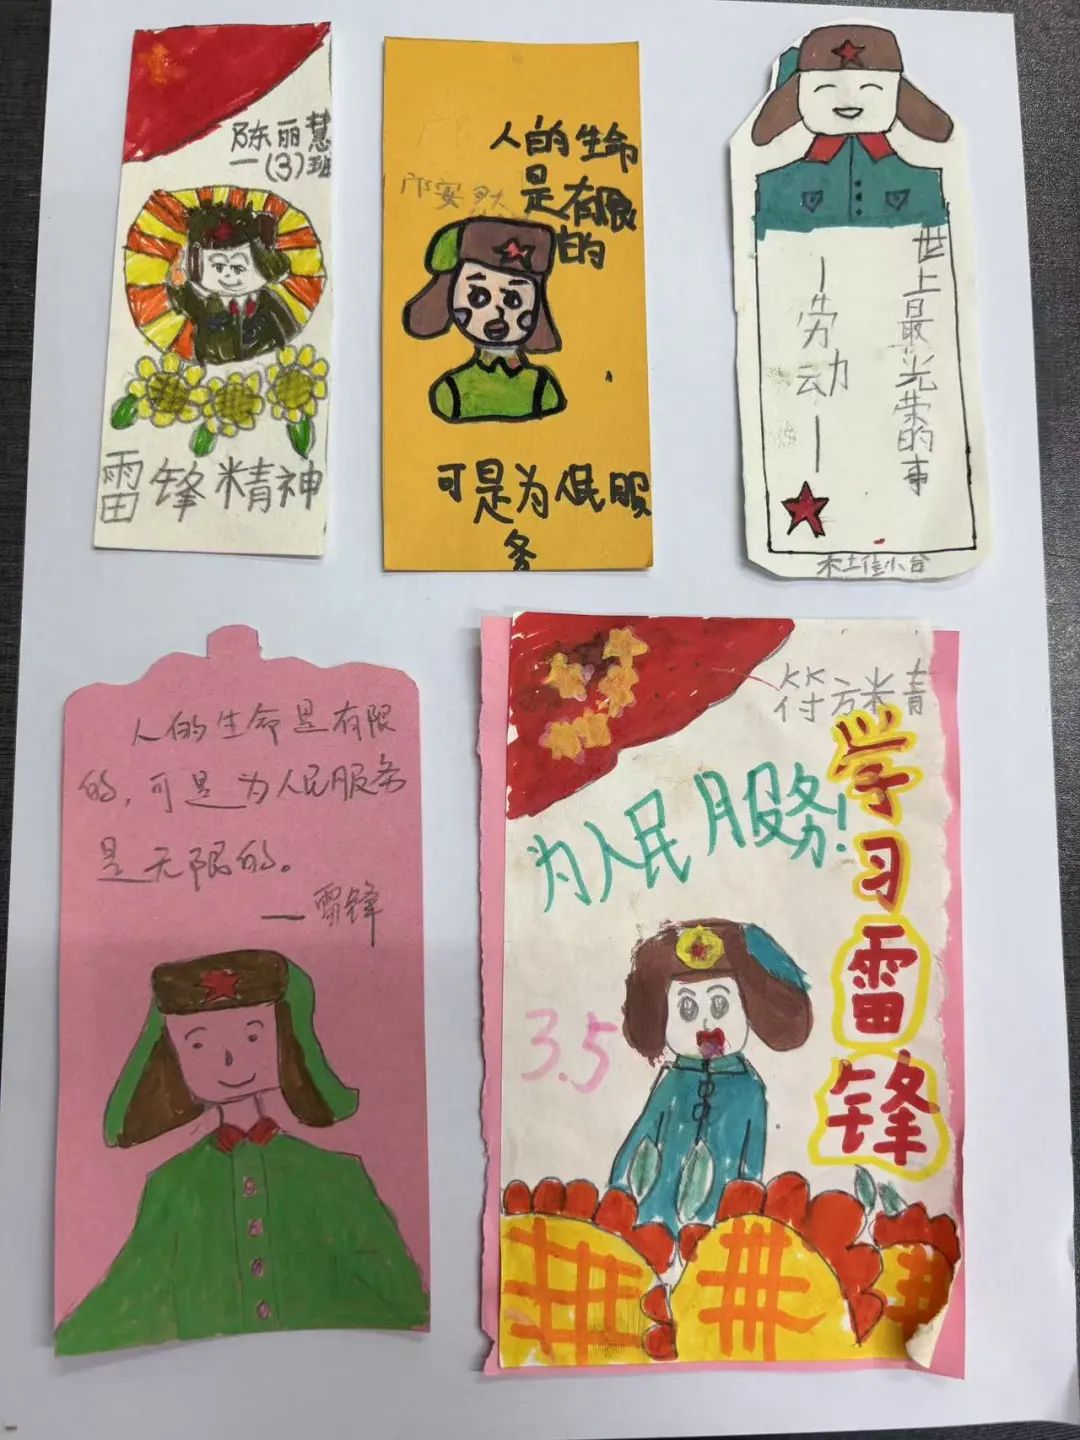 陈丽慧
一(3)班
雷锋精神
人的生命
是有限
的
可是为人民服
务
世上最光荣的事
—劳动—
人的生命是有限
的，可是为人民服务
是无限的。
——雷锋
符方精
为人民服务!
学习雷锋
3.5